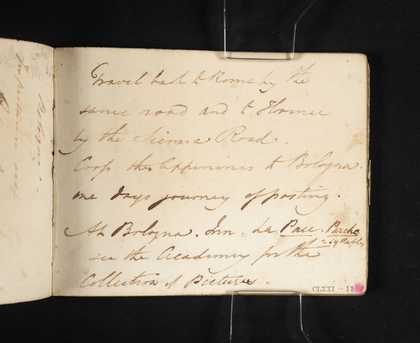 Travel back to Rome by the
same road and to Florence
by the Sienna Road.
Cross the Appenines to Bologna.
one days journey of posting.
At Bologna. Inn. La Pace.
see the Academy for the
Collection of Pictures.
CLXXI - 1